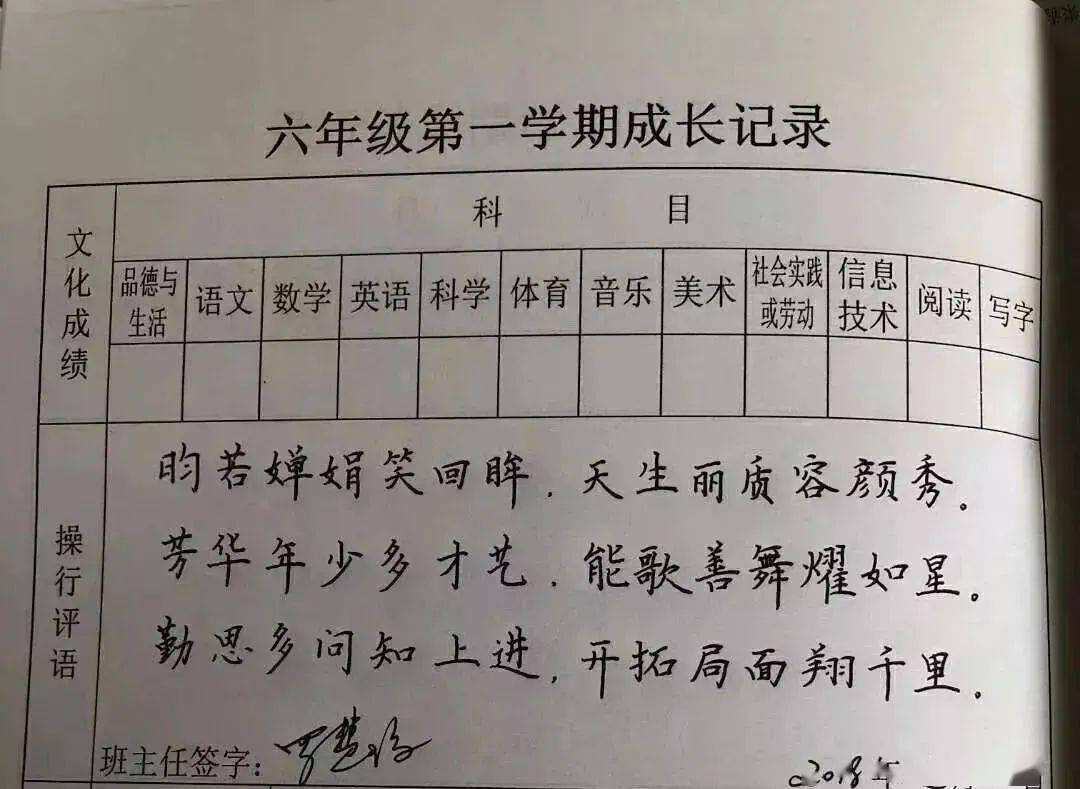 六年级第一学期成长记录
文化成绩
科 目
品德与生活 语文 数学 英语 科学 体育 音乐 美术 社会实践或劳动 信息技术 阅读 写字
操行评语
昀若婵娟笑回眸，天生丽质容颜秀。
芳华年少多才艺，能歌善舞耀如星。
勤思多问知上进，开拓局面翔千里。
班主任签字：
2018年